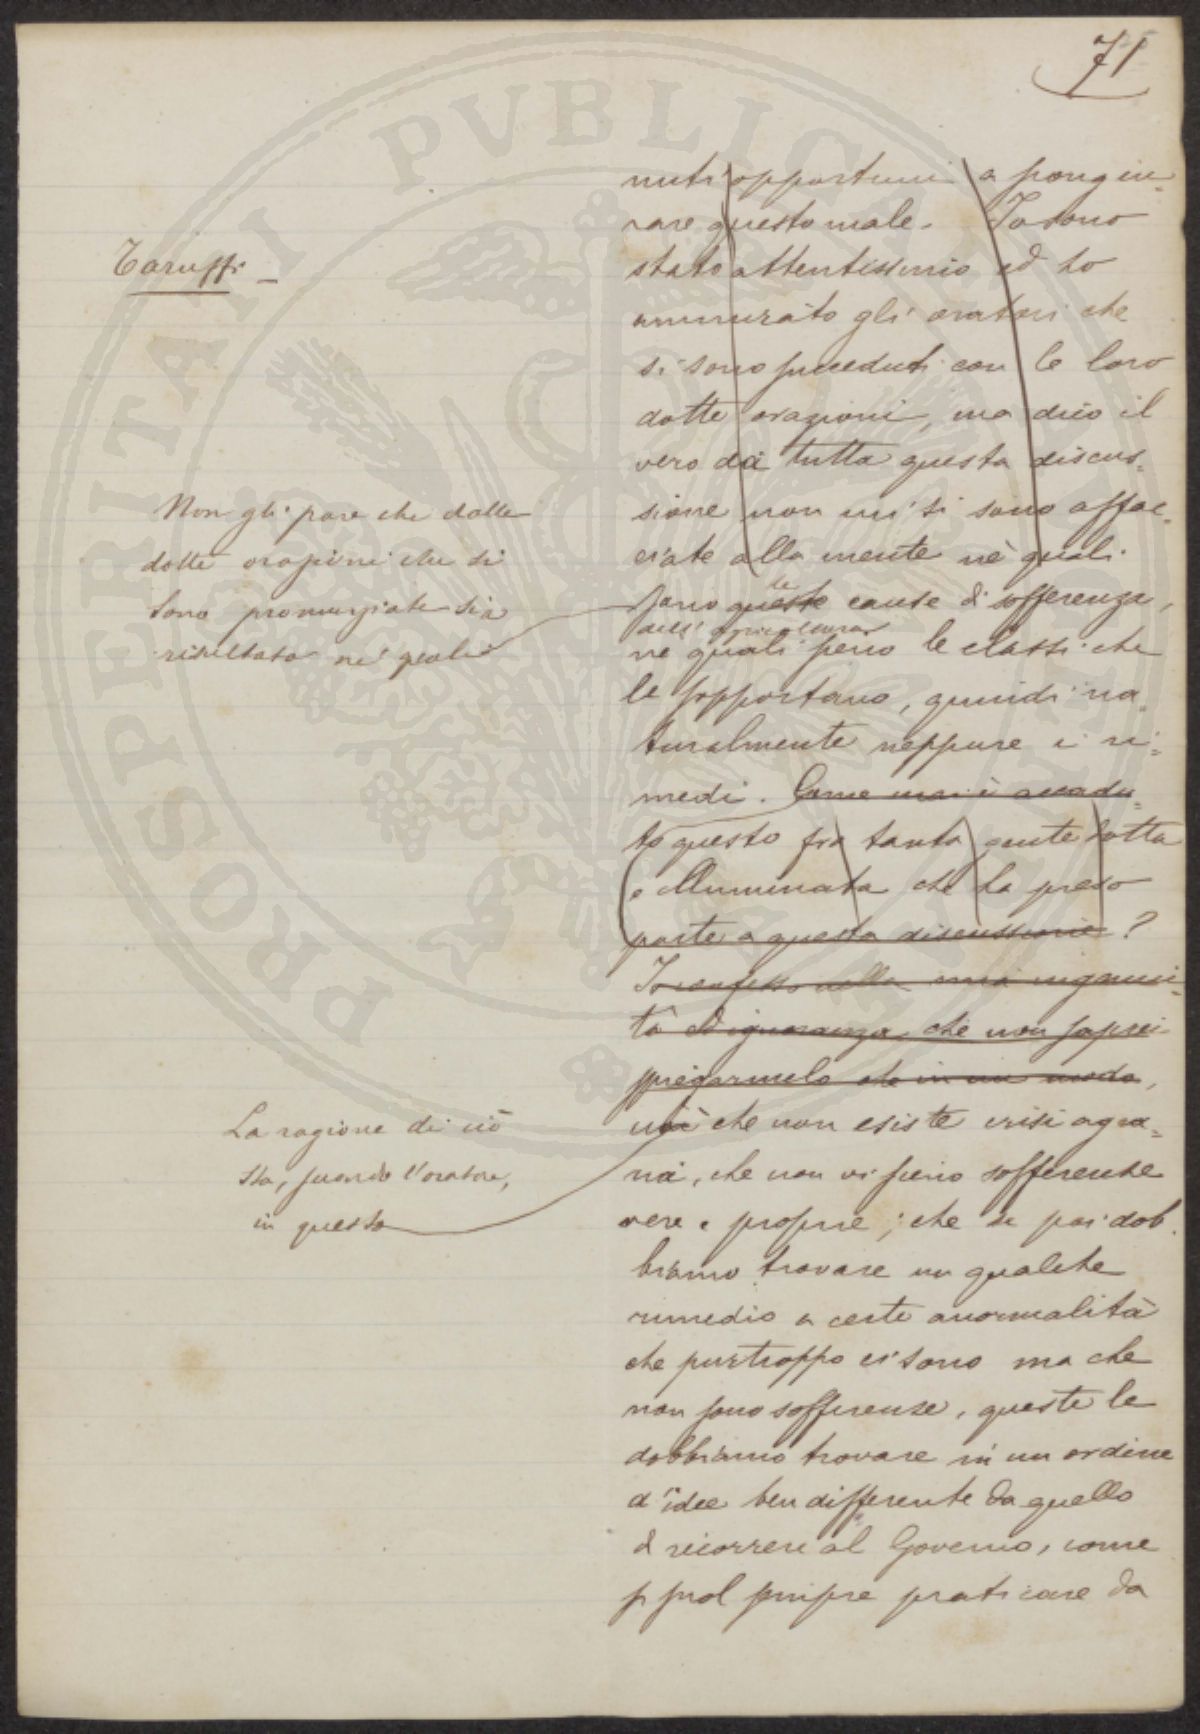 71
Taruffi
nuti opportuni a scongiu=
rare questo male. Io sono
stato attentissimo ed ho
ammirato gli oratori che
si sono succeduti con le loro
dotte orazioni, ma dico il
vero da tutta questa discus=
sione non mi si sono affac=
ciate alla mente nè quali
Non gli pare che dalle
dotte orazioni che si
sono pronunziate sia
risultato nè quali
sono queste le cause di sofferenza,
dell'agricoltura
nè quali sieno le classi che
le sopportano, quindi na=
turalmente neppure i ri=
medi. Come mai è accadu=
to questo fra tanta gente dotta
e illuminata che ha preso
parte a questa discussione?
Io confesso nella mia ingenui=
tà ed ignoranza, che non saprei
spiegarmelo che in un modo,
La ragione di ciò
sta, secondo l'oratore,
in questo
cioè che non esiste crisi agra=
ria, che non vi sieno sofferenze
vere e proprie; che se poi dob=
biamo trovare un qualche
rimedio a certe anormalità
che purtroppo ci sono ma che
non sono sofferenze, queste le
dobbiamo trovare in un ordine
d'idee ben differente da quello
di ricorrere al Governo, come
si suol sempre praticare da
PROSPERITATI PVBLICAE